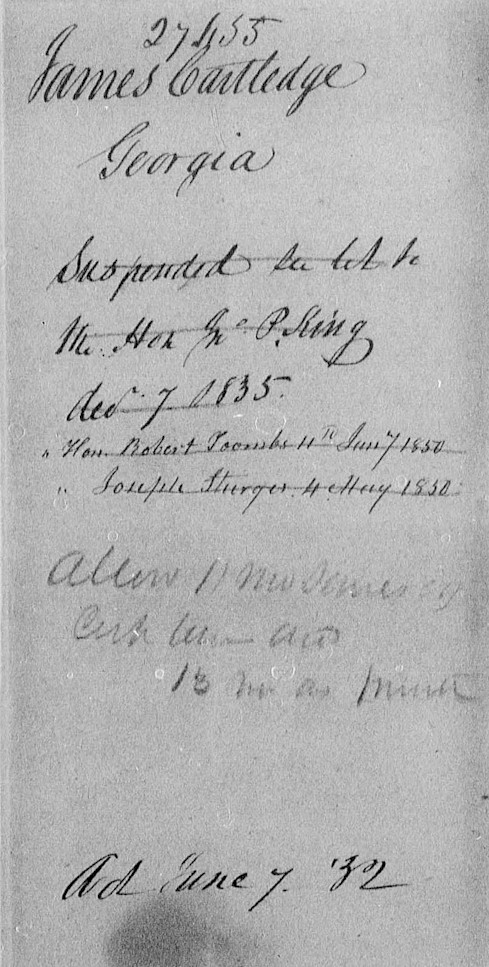 27455
James Cartledge
Georgia
Suspended See let to
the Hon Jno P. King
decr 7 1835.
" Hon. Robert Toombs 4th Jany 1850
" Joseph Sturges 4 May 1850
Allow
13 mo as
Act June 7. '32